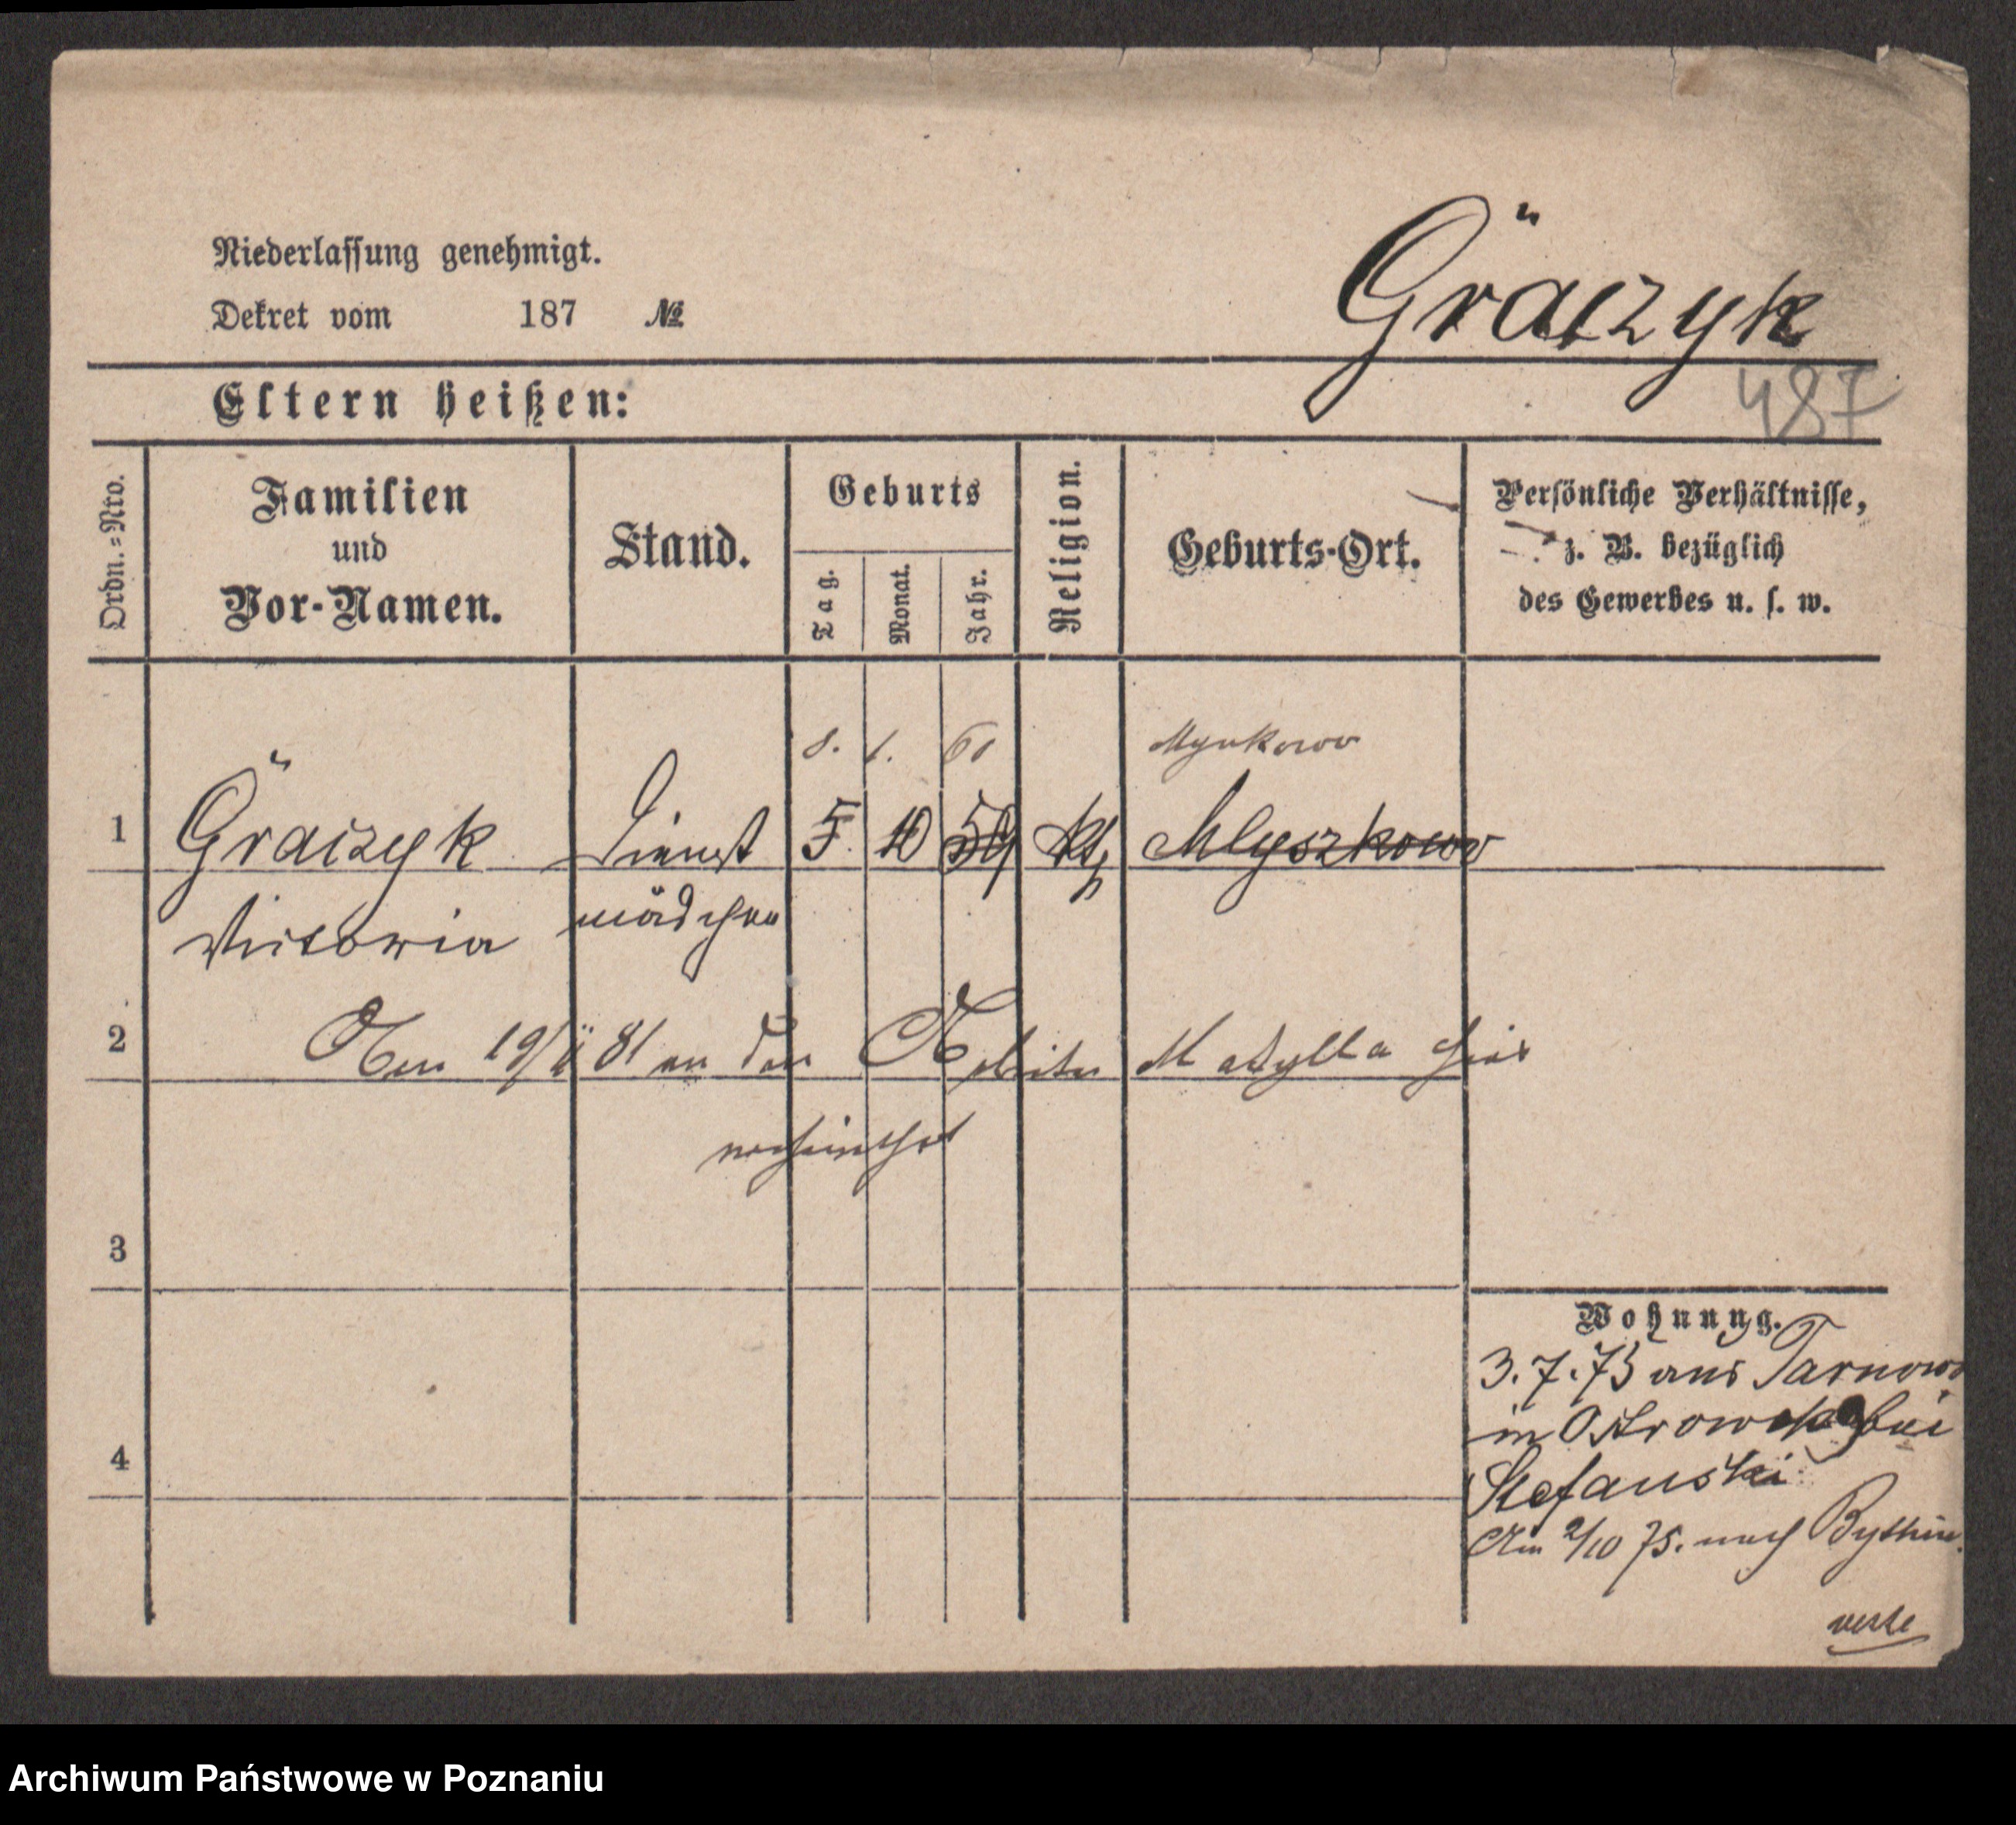 Niederlassung genehmigt.
Dekret vom 187 №
Gräczyk
487
Eltern heißen:
Ordn.=Nro.
Familien
und
Vor-Namen.
Stand.
Geburts
Tag.
Monat.
Jahr.
Religion.
Geburts-Ort.
Persönliche Verhältnisse,
z. B. bezüglich
des Gewerbes u. s. w.
8. 1. 60 Mynkowo
1 Gräczyk Dienst 5. 10 59 kth Mlyszkowo
Victoria mädchen
2 Am 19/ 81 an den Arbeiter Matylla hier
verheirathet
3
4
Wohnung.
3.7.75 aus Tarnowo
in Ostrowek bei
Stefanski
Am 2/10 75. nach Bythin.
verte
Archiwum Państwowe w Poznaniu